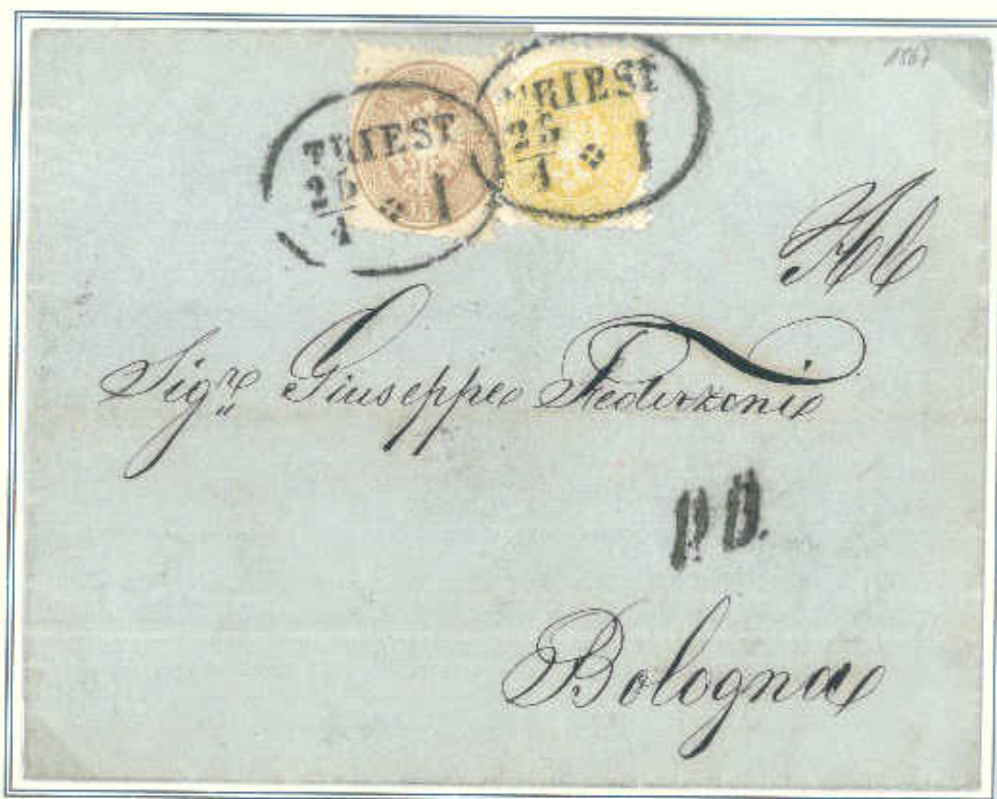 1867
TRIEST
25
1
TRIEST
25
1
Sigre Giuseppe Federzoni
P.D.
Bologna